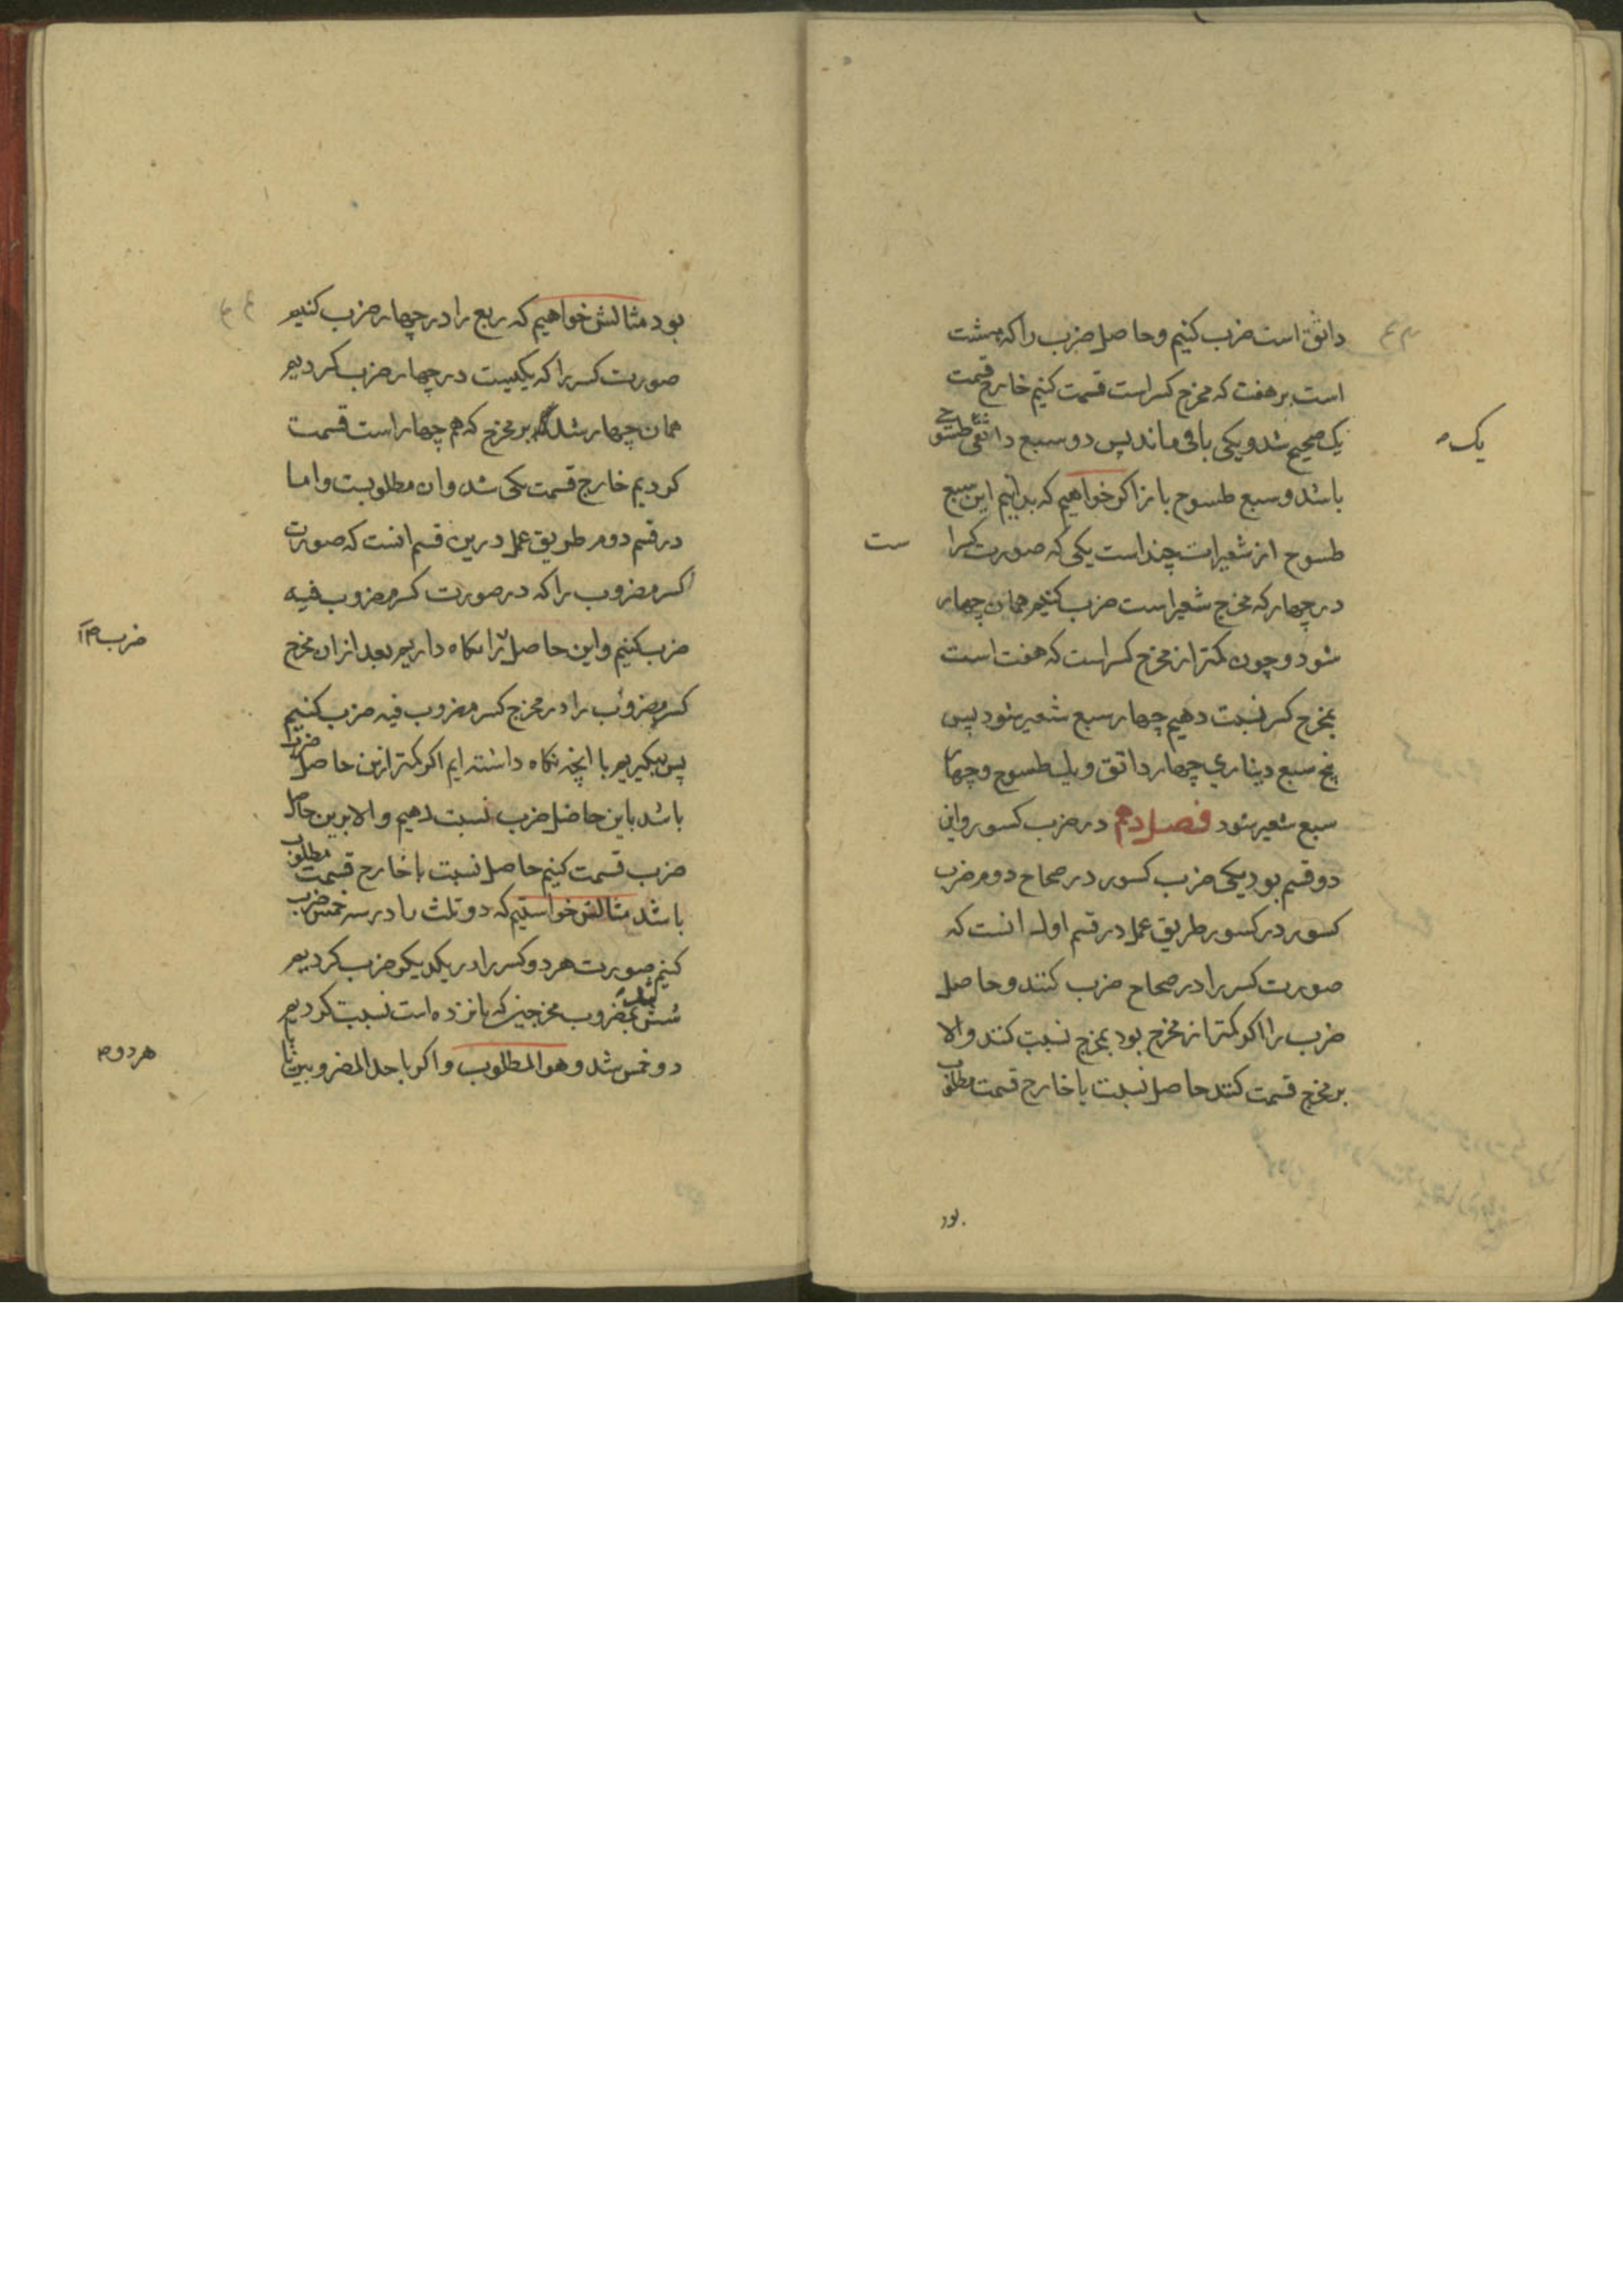 دانق است ضرب کنیم و حاصل ضرب را که هشت
است بر هفت که مخرج کسر است قسمت کنیم خارج قسمت
یک صحیح شد و یکی باقی ماند پس دو سبع دانقی طسوج
یک
باشد و سبع طسوج باز اکر خواهیم که بدانیم این سبع
طسوج از شعیرات چند است یکی که صورت کسر را
ست
در چهار که مخرج شعیر است ضرب کنیم همان چهار
شود و چون کمتر از مخرج کسر است که هفت است
بمخرج کسر نسبت دهیم چهار سبع شعیر شود پس
پنج سبع دیناری چهار دانق و یک طسوج و چهار
سبع شعیر شود فصل دهم در ضرب کسور و این
دو قسم بود یکی ضرب کسور در صحاح دوم ضرب
کسور در کسور طریق عمل در قسم اول انست که
صورت کسر را در صحاح ضرب کنند و حاصل
ضرب را اکر کمتر از مخرج بود بمخرج نسبت کنند والا
بر مخرج قسمت کنند حاصل نسبت یا خارج قسمت مطلوب
بود
بود مثالش خواهیم که ربع را در چهار ضرب کنیم
صورت کسر را که یکیست در چهار ضرب کردیم
همان چهار شد بر مخرج که هم چهار است قسمت
کردیم خارج قسمت یکی شد و ان مطلوبست و اما
در قسم دوم طریق عمل درین قسم انست که صورت
کسر مضروب را که در صورت کسر مضروب فیه
ضرب کنیم و این حاصل را نکاه داریم بعد از ان مخرج
ضرب
کسر مضروب را در مخرج کسر مضروب فیه ضرب کنیم
پس بنکیریم با انچه نکاه داشته ایم اکر کمتر ازین حاصل ضرب
باشد باین حاصل ضرب نسبت دهیم والا برین حاصل
ضرب قسمت کنیم حاصل نسبت یا خارج قسمت مطلوب
باشد مثالش خواستیم که دو ثلث را در سه خمس ضرب
کنیم صورت هر دو کسر را در یکدیکر ضرب کردیم
شش شد بمضروب مخرجین که پانزده است نسبت کردیم
دو خمس شد و هو المطلوب و اکر با احد المضروبین یا
هر دو